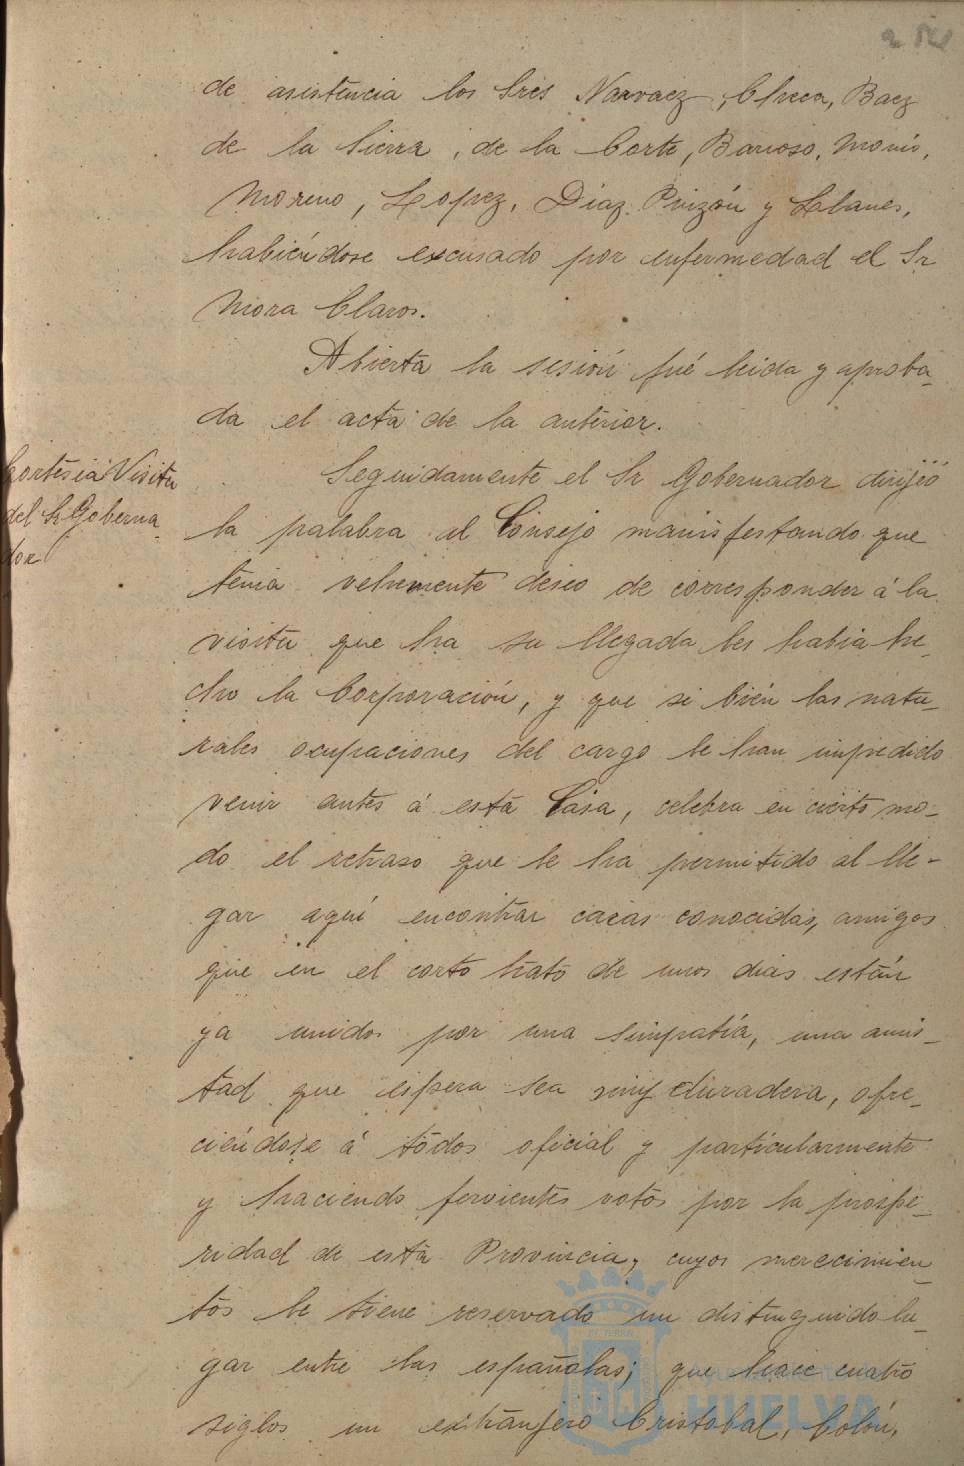 de asistencia los Sres Narvaez, Checa, Baez
de la Sierra, de la Corte, Barroso, Monís,
Moreno, Lopez, Diaz, Pinzón y Llanes,
habiéndose excusado por enfermedad el Sr
Mora Claros.
Abierta la sesión fué leida y aproba-
da el acta de la anterior.
Cortesia Visita
del Sr Goberna-
dor
Seguidamente el Sr Gobernador dirijió
la palabra al Consejo manisfestando que
tenia vehemente deseo de corresponder á la
visita que ha su llegada les habia he-
cho la Corporación, y que si bién las natu-
rales ocupaciones del cargo le han impedido
venir antes á esta Casa, celebra en cierto mo-
do el retraso que le ha permitido al lle-
gar aquí encontrar caras conocidas, amigos
que en el corto trato de unos dias están
ya unidos por una simpatía, una amis-
tad que espera sea muy duradera, ofre-
ciéndose á todos oficial y particularmente
y haciendo fervientes votos por la prospe-
ridad de esta Provincia, cuyos merecimien-
tos le tiene reservado un distinguido lu-
gar entre las españolas; que hace cuatro
siglos un extranjero Cristobal, Colón,
Ayuntamiento de
HUELVA